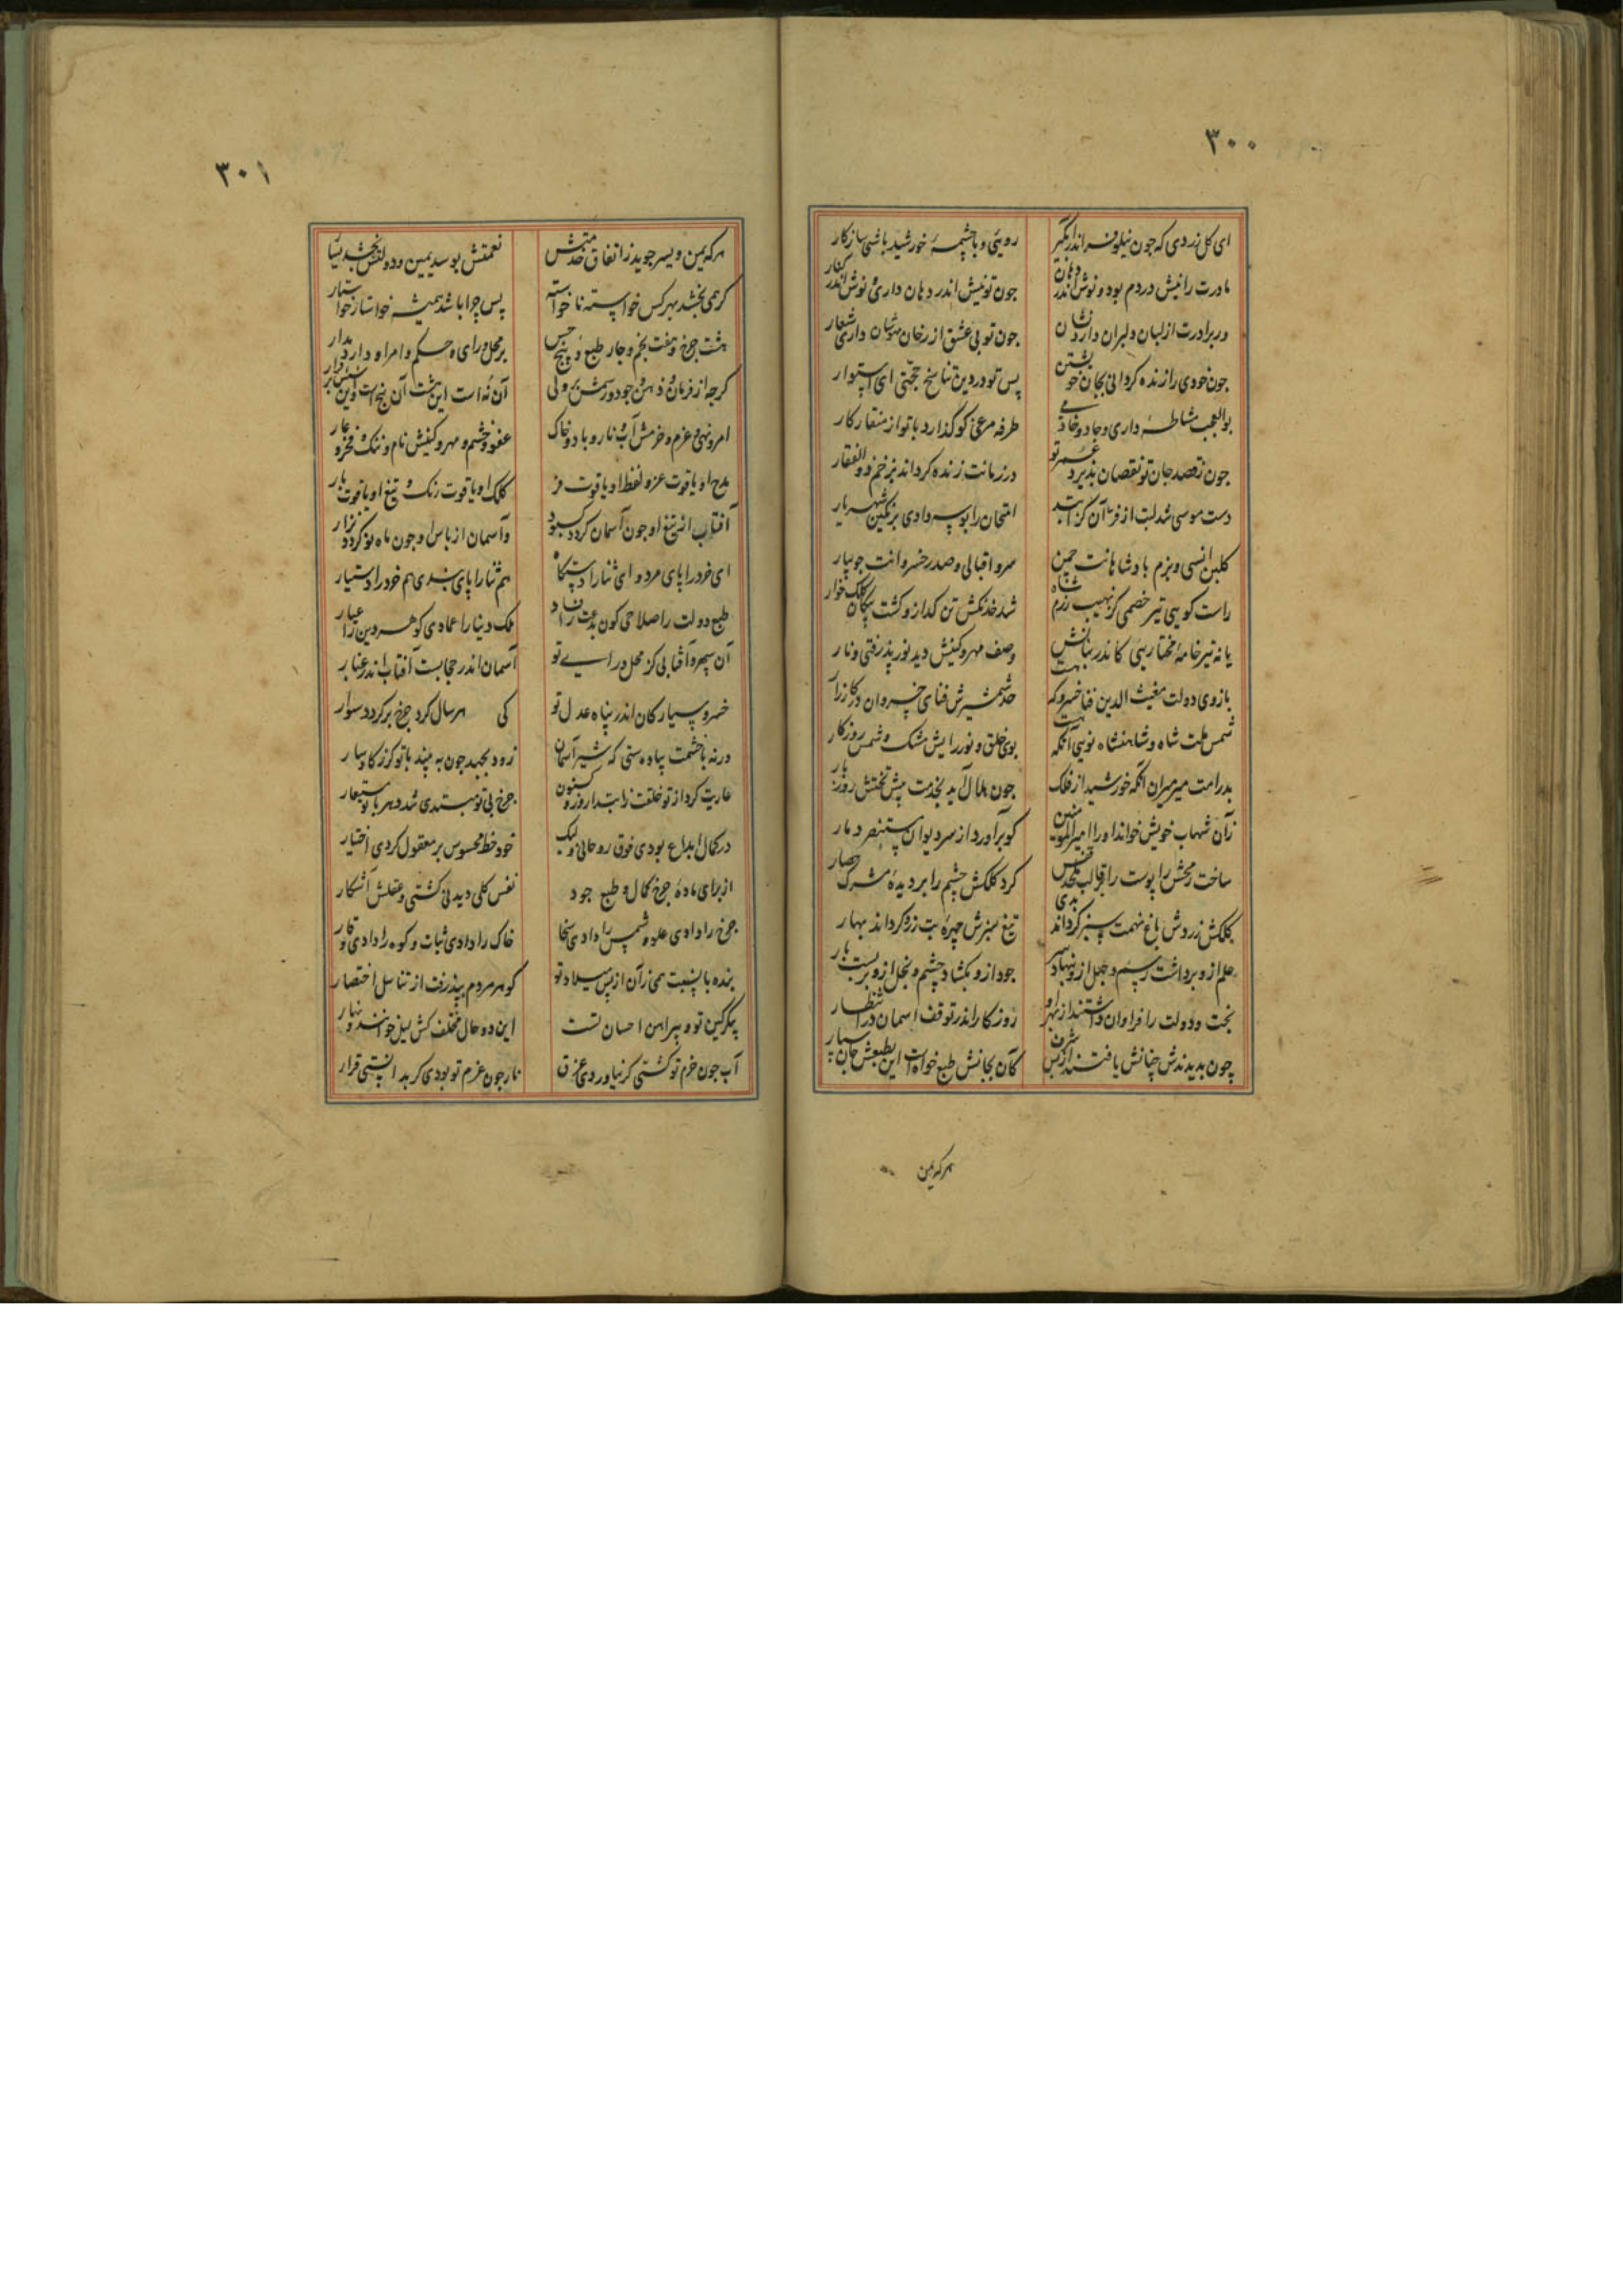 ٣٠٠
ای کل زردی که جون نیلوفر اندر آبگیر روئی و با چشمهٔ خورشید باشی سازکار
مادرت را نیش در دم بود و نوش اندر دهان جون تو نیش اندر دهان داری و نوش اندر کنار
ور برادرت از لبان دلبران دارد نشان جون تو بی عشق از رخان داری شعار
جون خودی را زنده کردانی بجان خویشتن پس تو در دین تناسخ حجتی ای استوار
بوالعجب مشاطهٔ داری و جادو خادمی طرفه مرغی کو کذارد با تو از منقار کار
جون ز قصد جان تو نقصان پذیرد عمر تو در زمانت زنده کرداند بزخم ذوالفقار
دست موسی شد لبت از فر آن کز امتحان را بوسه دادی بر نکین شهریار
کلبن انسی و بزم بادشاهانت چمن سرو اقبالی و صدر خسروانت جویبار
راست کویی تیر خصمی کز نهیب رزم شاه شد خدنکش تن کداز و کشت پیکان کلک خوار
یا نه تیر خامهٔ مختار یی کاندر بنانش وصف مهر و کینش دید نور پذرفتی و نار
بازوی دولت مغیث الدین فناخسرو که هست حد شمشیرش فنای خسروان در کارزار
شمس ملت شاه و شاهنشاه نو یی آنکه هست بوی خلق و نور رایش مشک و شمس روزکار
بدر امت میر میران انکه خورشید از فلک جون هلال آید بخدمت پیش تختش روز بار
زان شهاب خویش خواند او را امیرالمؤمنین کو برآورد از سر دیوان مستنصر دمار
ساخت رمحش را پوست را قالب کرد کلکش چشم را بر دیدهٔ مشرک حصار
کلکش زردش باغ نهمت سبز کرداند بدی تیغ سبزش چهرهٔ بت زرد کرداند بهار
علم ازو برداشت رسم و جهل ازو بنهاد سر جود ازو بکشاد چشم و بخل ازو بربست بار
بخت و دولت را فراوان داشتند از بهر او روزکار اندر توقف اسمان در انتظار
چون بدیدندش چنانش یافتند از بس شرف کان بجانش طبع خواه است این بطبعش جان سپار
هر که یمن
٣٠١
هر که یمن و یسر جوید ز اتفاق خدمتش نعمتش بوسد یمین و دولتش بخشد یسار
کر همی بخشد بهر کس خواسته نا خواسته پس چرا باشد همیشه خواستار خواستار
هشت چرخ و هفت نجم و چار طبع و پنج حس بر محل و رای و حکم و امر او دارد مدار
کرجه از فرمان و ذهن و جود و رسمش ولی آن نه است این هشت آن پنج است وین
امر و نهی و عزم و خرمش آب و نار و باد و خاک عفو و خشم و مهر و کینش نام و ننک و فخر و عار
مدح او یاقوت عز و لفظ او یاقوت فر کلک او یاقوت رنک و تیغ او یاقوت بار
آفتاب از تیغ او جون آسمان کردد کبود وآسمان از باس او جون ماه نو کردد نزار
ای خرد را پای مرد و ای ثنا را دستکاه هم ثنا را پای بندی هم خرد را دستیار
طبع دولت را صلاحی کون بدعت را فساد ملک دنیا را عمادی کوهر دین را عیار
آن سپهر و آفتابی کز محل و رای تو آسمان اندر حجابست آفتاب اندر غبار
خسرو سیارکان اندر پناه عدل تو کی هر سال کرد چرخ برکردد سوار
ورنه با خشمت پیاده ستی که شیر آسمان زود بجهد جون به بیند با تو کرز کاوسار
عاریت کرد از تو خلقت ز ابتدا روز و کنون چرخ بی تو مبتدی شد دهر با تو مستعار
در کمال ابداع بودی فوق روحانی و لیک خود خط محسوس بر معقول کردی اختیار
از برای مادهٔ چرخ کمال و طبع جود نفس کلی دیدنی کشتی و عقلش آشکار
چرخ را دادی علو و شمس را دادی سخا خاک را دادی ثبات و کوه را دادی وقار
بنده با نسبت همی زان از پس میلاد تو کوهر مردم بپذرفت از تناسل اختصار
پیکر کین تو و پیراهن احسان تست این دو حال مختلف کش لیل خوانند و نهار
آب جون خرم تو کشتی کر نیاوردی عرق نار جون عزم تو بودی کر بدانستی قرار